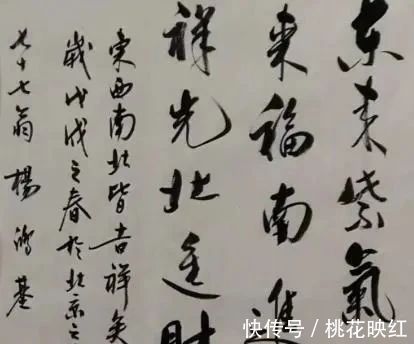 东来紫氣
来福南進
祥光北進財
東西南北皆吉祥矣
歲戊戌之春於北京之
七十七翁楊鴻基
快传号 / 桃花映红